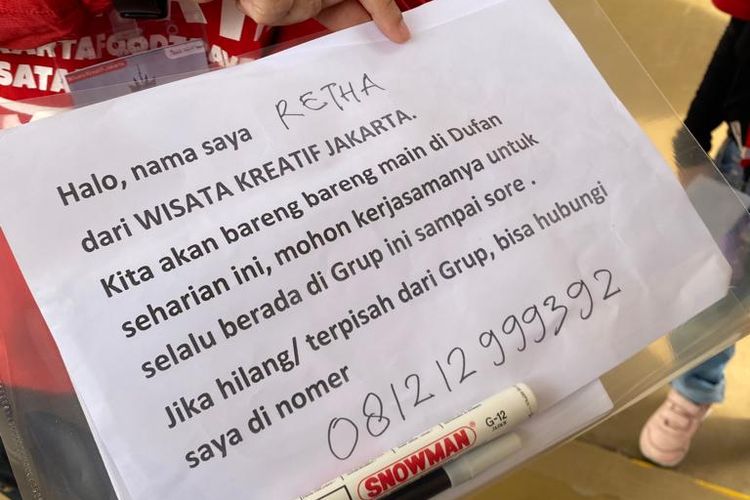 Halo, nama saya RETHA
dari WISATA KREATIF JAKARTA.
Kita akan bareng bareng main di Dufan
seharian ini, mohon kerjasamanya untuk
selalu berada di Grup ini sampai sore .
Jika hilang/ terpisah dari Grup, bisa hubungi
saya di nomer 081212999392
SNOWMAN
G-12
JAPAN